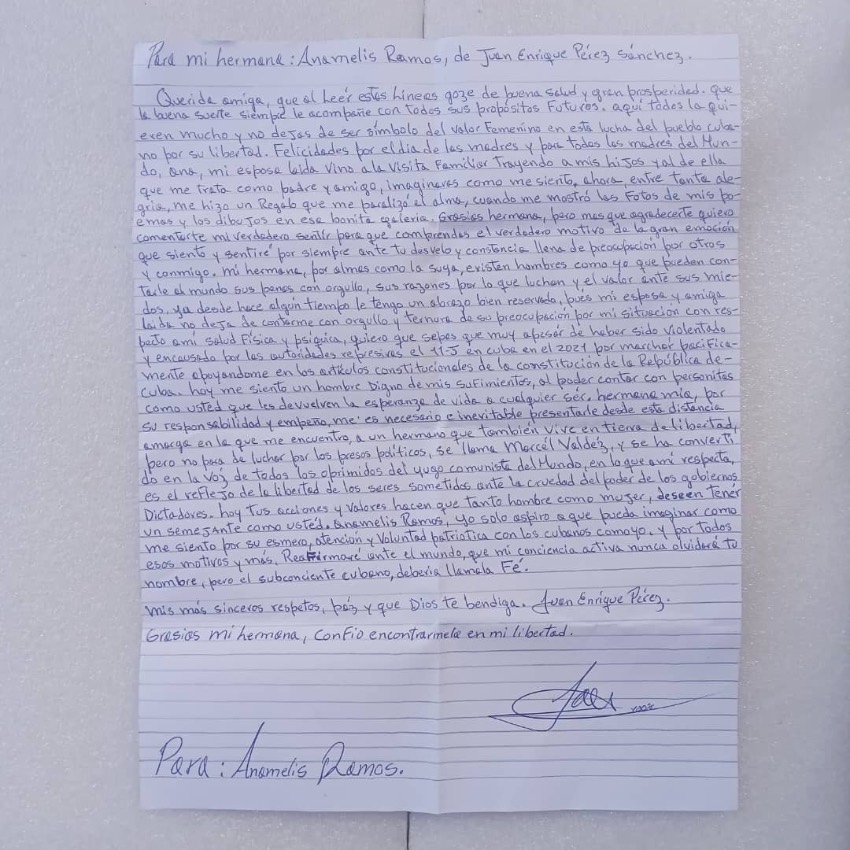 Para mi hermana: Anamelis Ramos, de Juan Enrique Pérez Sánchez.
Querida amiga, que al Leér estas líneas goze de buena salud y gran prosperidad. que
la buena suerte siempre le acompañe con todos sus propósitos Futuros. aquí todos la qui-
eren mucho y no dejas de ser símbolo del valor Femenino en esta lucha del pueblo cuba-
no por su libertad. Felicidades por el día de las madres y para todas las madres del Mun-
do, ana, mi esposa laida vino a la visita Familiar Trayendo a mis hijos y al de ella
que me trata como padre y amigo, imaginaras como me siento. ahora entre tanta ale-
gria, me hizo un Regalo que me paralizó el alma, cuando me mostró las Fotos de mis po-
emas y los dibujos en esa bonita galeria. Grasias hermana, pero mas que agradecerte quiero
comentarte mi verdadero sentir para que comprendas el verdadero motivo de la gran emoción
que siento y sentiré por siempre ante tu desvelo y constancia llena de preocupación por otros
y conmigo. mi hermana, por almas como la suya, existen hombres como yo que pueden con-
tarle al mundo sus penas con orgullo, sus razones por lo que luchan y el valor ante sus mie-
dos, ya desde hace algún tiempo le tengo un abrazo bien reservado, pues mi esposa y amiga
laida no deja de contarme con orgullo y ternura de su preocupación por mi situación con res-
pecto a mi salud Física y psíquica, quiero que sepas que muy apesar de haber sido violentado
y encausado por las autoridades represivas el 11-J en cuba en el 2021 por marchar pacifica-
mente apoyandome en los artículos constitucionales de la constitución de la República de-
Cuba. hoy me siento un hombre Digno de mis sufrimientos, al poder contar con personitas
como usted que les devuelven la esperanza de vida a cualquier sér. hermana mía, por
su responsabilidad y empeño, me es necesario e inevitable presentarle desde esta distancia
amarga en la que me encuentro, a un hermano que también vive en tierra de libertad,
pero no para de luchar por los presos políticos, se llama Marcél Valdéz, y se ha converti
do en la voz de todos los oprimidos del yugo comunista del Mundo, en lo que a mi respecta,
es el reflejo de la libertad de los seres sometidos ante la crueldad del poder de los gobiernos
Dictadores. hoy Tus acciones y valores hacen que tanto hombre como mujer, deseen tener
un semejante como usted. Anamelis Ramos, yo solo aspiro a que pueda imaginar como
me siento por su esmero, atención y Voluntad patriotica con los cubanos como yo. y por todos
esos motivos y más. Reafirmaré ante el mundo, que mi conciencia activa nunca olvidará tu
nombre, pero el subconciente cubano, deberia llamala Fé.
mis más sinceros respetos, páz y que Dios te bendiga. Juan Enrique Pérez.
Grasias mi hermana, Confío encontrarmela en mi libertad.
Para: Anamelis Ramos.